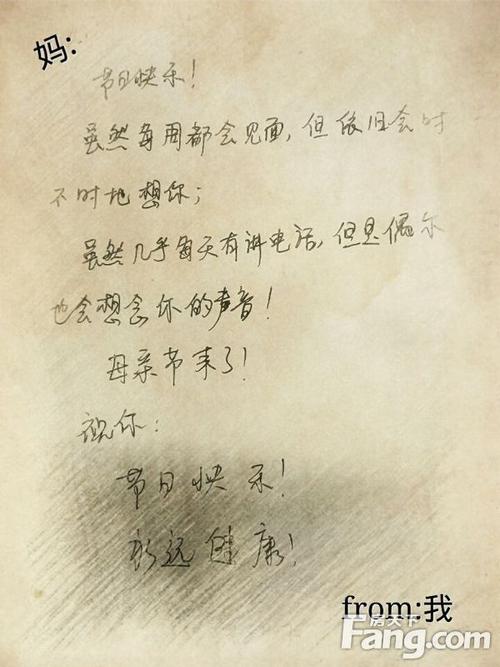 妈:
节日快乐!
虽然每周都会见面,但依旧会时
不时地想你;
虽然几乎每天有讲电话,但是偶尔
也会想念你的声音!
母亲节来了!
祝你:
节日快乐!
永远健康!
from:我
房天下
Fang.com